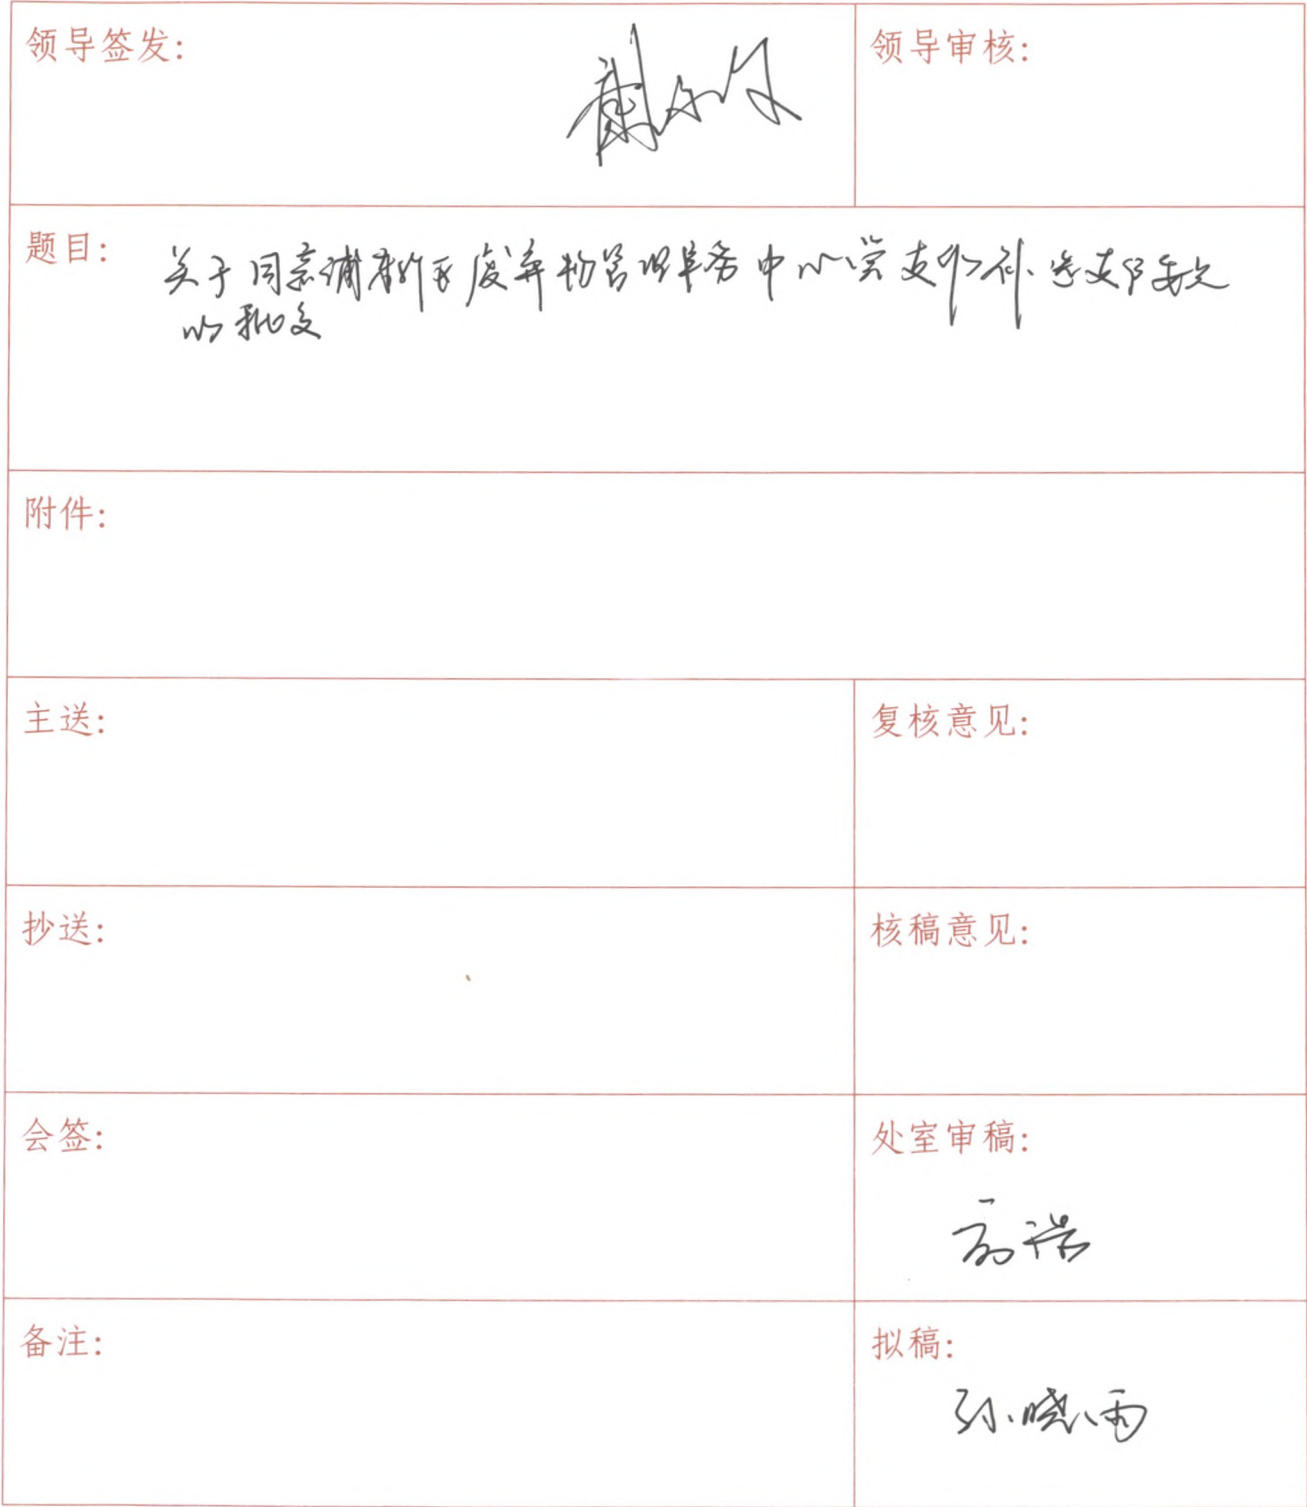 领导签发:
领导审核:
题目: 关于同意浦东新区废弃物管理事务中心党支部补选支部委员
的批复
附件:
主送:
复核意见:
抄送:
核稿意见:
会签:
处室审稿:
备注:
拟稿:
孙晓雨